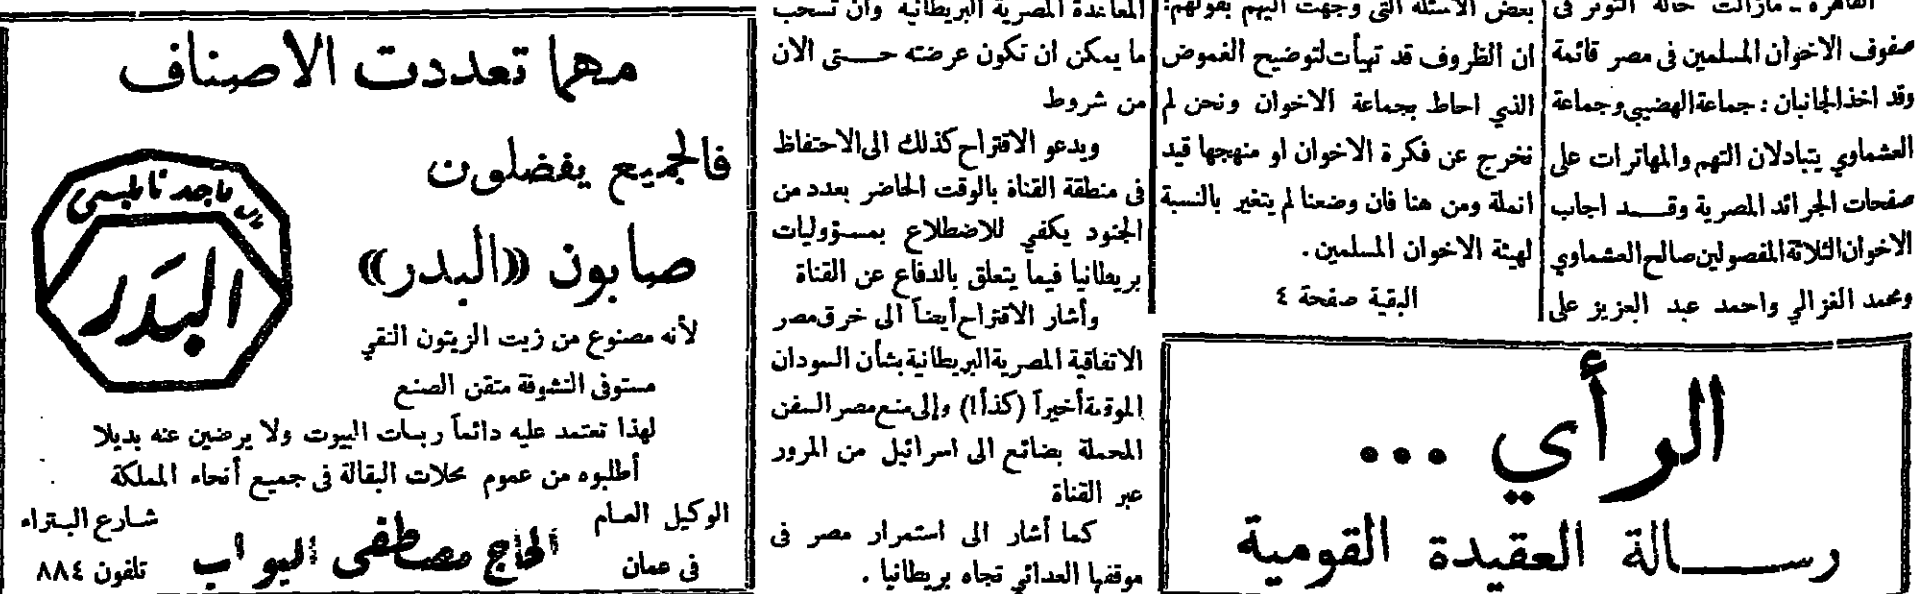 القاهرة ـ مازالت حالة التوتر في
صفوف الاخوان المسلمين في مصر قائمة
وقد اخذ الجانبان : جماعة الهضيبي وجماعة
العشماوي يتبادلان التهم والمهاترات على
صفحات الجرائد المصرية وقـــد اجاب
الاخوان الثلاثة المفصولين صالح العشماوي
ومحمد الغزالي واحمد عبد العزيز على
بعض الاسئلة التي وجهت اليهم بقولهم:
ان الظروف قد تهيأت لتوضيح الغموض
الذي احاط بجماعة الاخوان ونحن لم
نخرج عن فكرة الاخوان او منهجها قيد
انملة ومن هنا فان وضعنا لم يتغير بالنسبة
لهيئة الاخوان المسلمين .
البقية صفحة ٤
الرأي ...
رســـالة العقيدة القومية
المعاهدة المصرية البريطانية وان تسحب
ما يمكن ان تكون عرضته حـــتى الان
من شروط
ويدعو الاقتراح كذلك الى الاحتفاظ
في منطقة القناة بالوقت الحاضر بعدد من
الجنود يكفي للاضطلاع بمسؤوليات
بريطانيا فيما يتعلق بالدفاع عن القناة
وأشار الاقتراح أيضاً الى خرق مصر
الاتفاقية المصرية البريطانية بشأن السودان
الموقعة أخيراً (كذا!) وإلى منع مصر السفن
المحملة بضائع الى اسرائيل من المرور
عبر القناة
كما أشار الى استمرار مصر في
موقفها العدائي تجاه بريطانيا .
مهما تعددت الاصناف
فالجميع يفضلون
صابون «البدر»
ماجد نابلسي
البدر
لأنه مصنوع من زيت الزيتون النقي
مستوفى النشوفة متقن الصنع
لهذا تعتمد عليه دائماً ربات البيوت ولا يرضين عنه بديلا
أطلبوه من عموم محلات البقالة في جميع أنحاء المملكة
الوكيل العـام
في عمان
الحاج مصطفى البواب
شـارع البـتراء
تلفون ٨٨٤